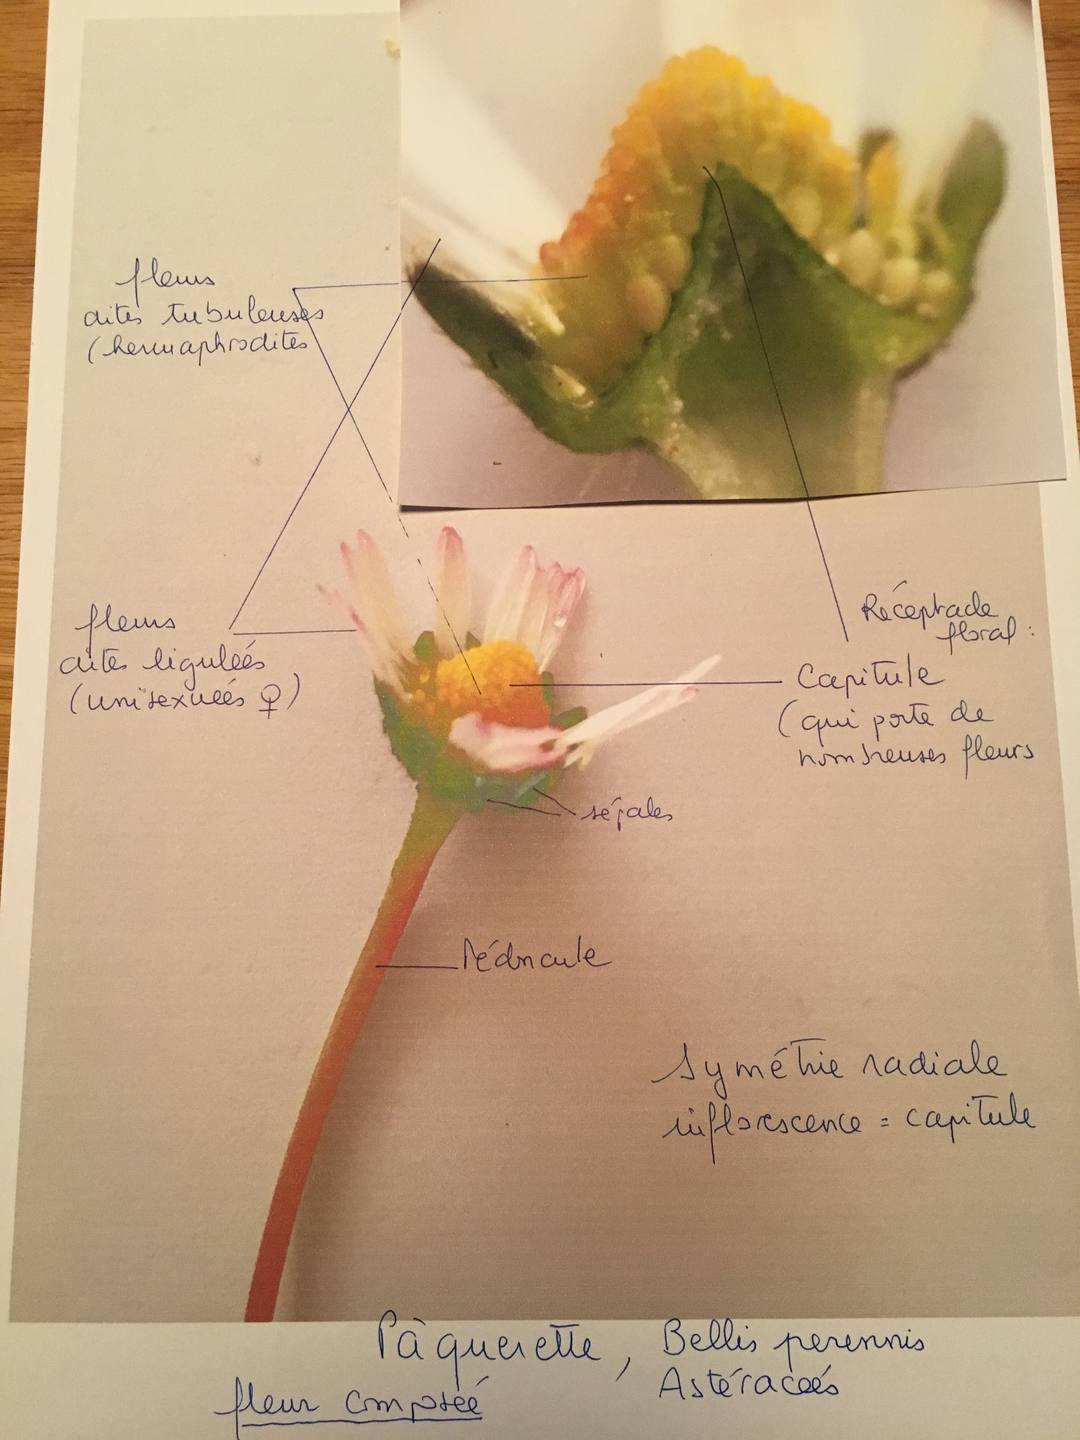 fleurs
dites tubuleuses
(hermaphrodites
fleurs
dites ligulées
(unisexuées ♀)
Réceptacle
floral :
Capitule
(qui porte de
nombreuses fleurs
sépales
Pédoncule
Symétrie radiale
inflorescence = capitule
Pâquerette, Bellis perennis
Astéracées
fleur composée